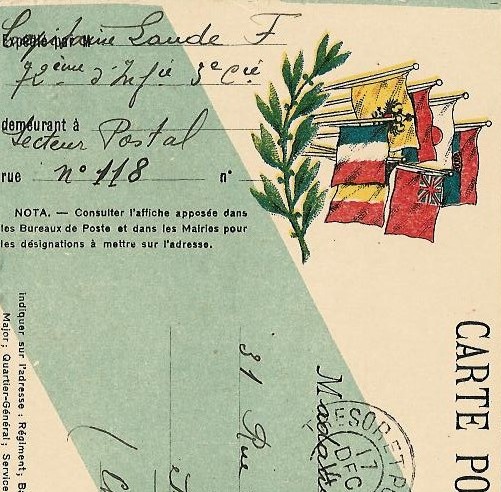 Expédié par M Capitaine Laude F
72ème d'Infie 3e Cie
demeurant à Secteur Postal
rue n° 118 n°
NOTA. — Consulter l'affiche apposée dans
les Bureaux de Poste et dans les Mairies pour
les désignations à mettre sur l'adresse.
indiquer sur l'adresse : Régiment; Ba
Major; Quartier-Général; Service
31 Rue
CARTE PO
TRESOR ET P
17
DEC